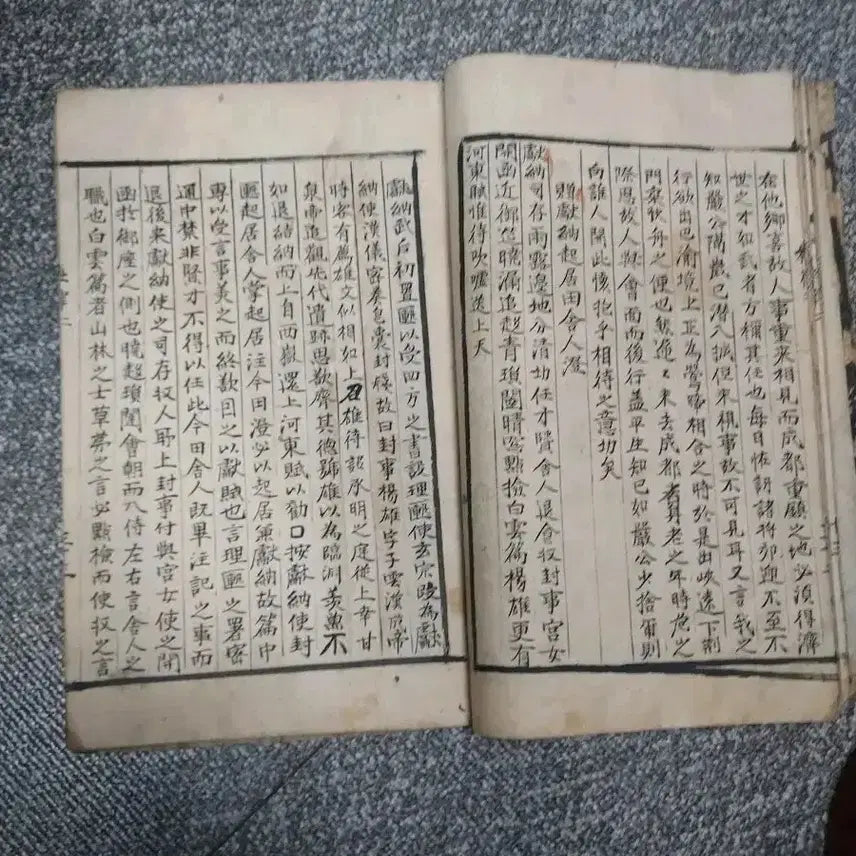 在他鄉喜故人事重來相見而成都重顧之地必須得濟
世之才如武者方稱其任也每日怅朝諸將郊迎不至不
知嚴公隔歲已潛入 但未視事故不可見耳又言我之
行欲出巴渝境上正為 相合之時於是出峽遠下荆
門乘飲舟之便也 來去成都 老之年時危之
際思故人與會面而後行盖平生知己如嚴公少捨爾則
向誰人開此懷抱乎相待之意切矣
贈獻納起居田舍人澄
獻納司存雨露邊地分清切任才賢舍人退食收封事宮女
開函近御筵曉漏追趨青瑣闥晴窓點檢白雲篇楊雄更有
河東賦惟待吹嘘送上天
獻納武后初置匭以受四方之書設理匭使玄宗改為獻
納使漢儀密奏皂囊封疏故曰封事楊雄字子雲漢成帝
時客有薦雄文似相如上召雄待詔承明之庭從上幸甘
泉帝追觀先代遺跡思欲齊其德號雄以為臨淵羨魚不
如退結網而上自西嶽還上河東賦以勸 按獻納使封
匭起居舍人掌起居注今田澄必以起居兼獻納故篇中
專以受言事美之而終欲因之以獻賦也言理匭之署密
通中禁非賢才不得以任此今田舍人既畢注記之事而
退後來獻納使之司存收人所上封事付與宮女使之開
函於御座之側也曉趨瑣闥會朝而入侍左右言舍人之
職也白雲篇者山林之士草莽之言必點檢而使收之言